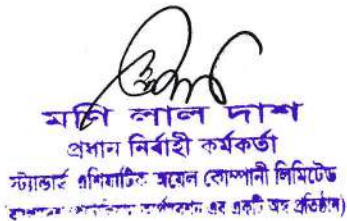 মনি লাল দাশ
প্রধান নির্বাহী কর্মকর্তা
স্ট্যান্ডার্ড এশিয়াটিক অয়েল কোম্পানী লিমিটেড
এর একটি অঙ্গ প্রতিষ্ঠান)